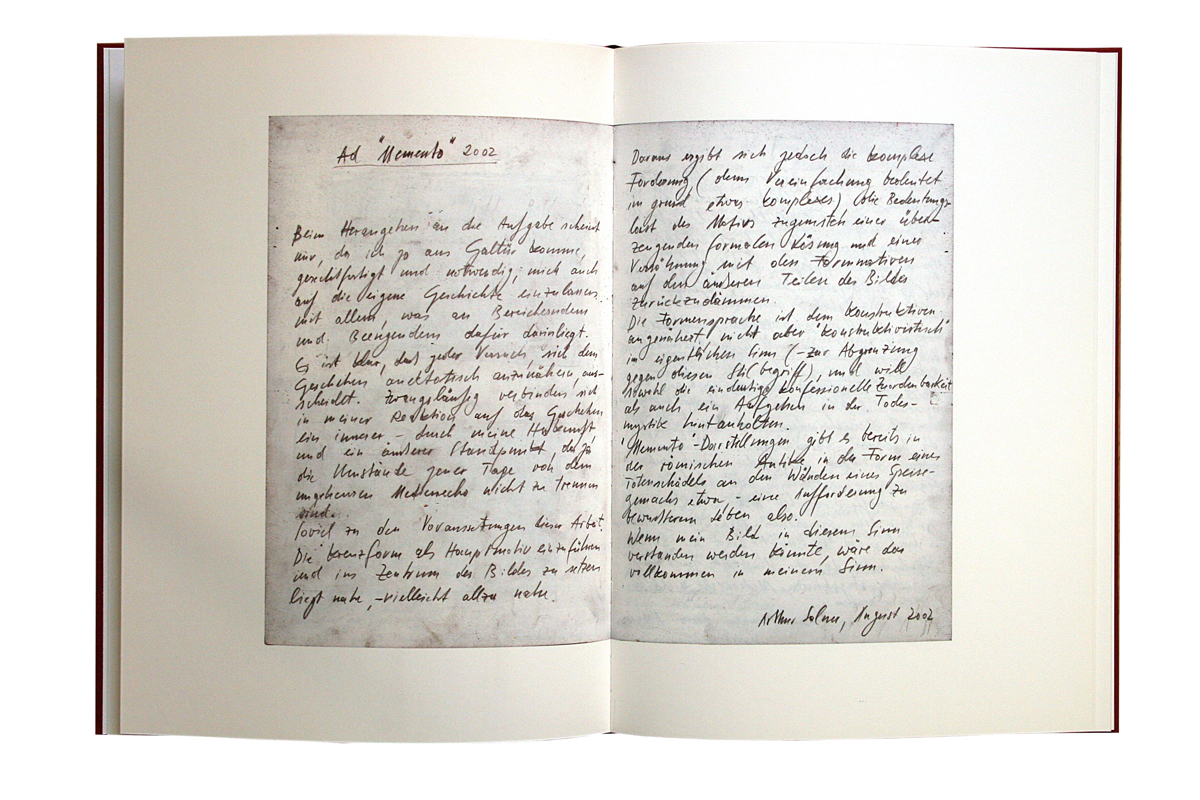 Ad "Memento" 2002
Beim Herangehen an die Aufgabe scheint
mir, da ich ja aus Galtür komme,
gerechtfertigt und notwendig, mich auch
auf die eigene Geschichte einzulassen
mit allem, was an Bereicherndem
und Beengendem dafür darinliegt.
Es ist klar, daß jeder Versuch, sich dem
Geschehen anekdotisch anzunähern, aus-
scheidet. Zwangsläufig verbinden sich
in meiner Reaktion auf das Geschehen
ein innerer – durch meine Herkunft
und ein äußerer Standpunkt, da ja
die Umstände jener Tage von dem
ungeheuren Medienecho nicht zu trennen
sind.
Soviel zu den Voraussetzungen dieser Arbeit.
Die Kreuzform als Hauptmotiv einzuführen
und ins Zentrum des Bildes zu setzen
liegt nahe, – vielleicht allzu nahe.
Daraus ergibt sich jedoch die komplexe
Forderung (denn Vereinfachung bedeutet
im grund etwas komplexes) die Bedeutungs-
last des Motivs zugunsten einer über-
zeugenden formalen Lösung und einer
Versöhnung mit den Formmotiven
auf den äusseren Teilen des Bildes
zurückzudämmen.
Die Formensprache ist dem konstruktiven
angenähert, nicht aber "konstruktivistisch"
im eigentlichen Sinn (– zur Abgrenzung
gegen diesen Stilbegriff), und will
sowohl die eindeutige konfessionelle Zuordenbarkeit
als auch ein Aufgehen in der Todes-
mystik hintanhalten.
"Memento"-Darstellungen gibt es bereits in
der römischen Antike in der Form eines
Totenschädels an den Wänden eines Speise-
gemachs etwa, – eine Aufforderung zu
bewussterem Leben also.
Wenn mein Bild in diesem Sinn
verstanden werden könnte, wäre das
vollkommen in meinem Sinn.
Arthur Salner, August 2002